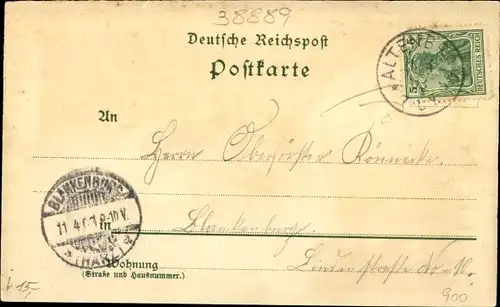 38889
Deutsche Reichspost
Postkarte
ALTENB
5 DEUTSCHES REICH 5
An
Herrn Oberförster Rönnicke.
BLANKENBURG
11. 4. 8-10 V.
(HARZ)
in
Blankenburg
Wohnung
(Straße und Hausnummer.)
Lindenstraße No
15,-
900